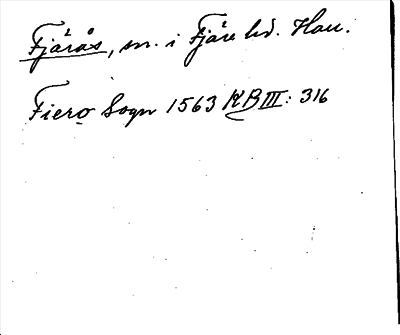 Fjärås, sn. i Fjäre hd. Hall.
Fiero Sogn 1563 KB III: 316